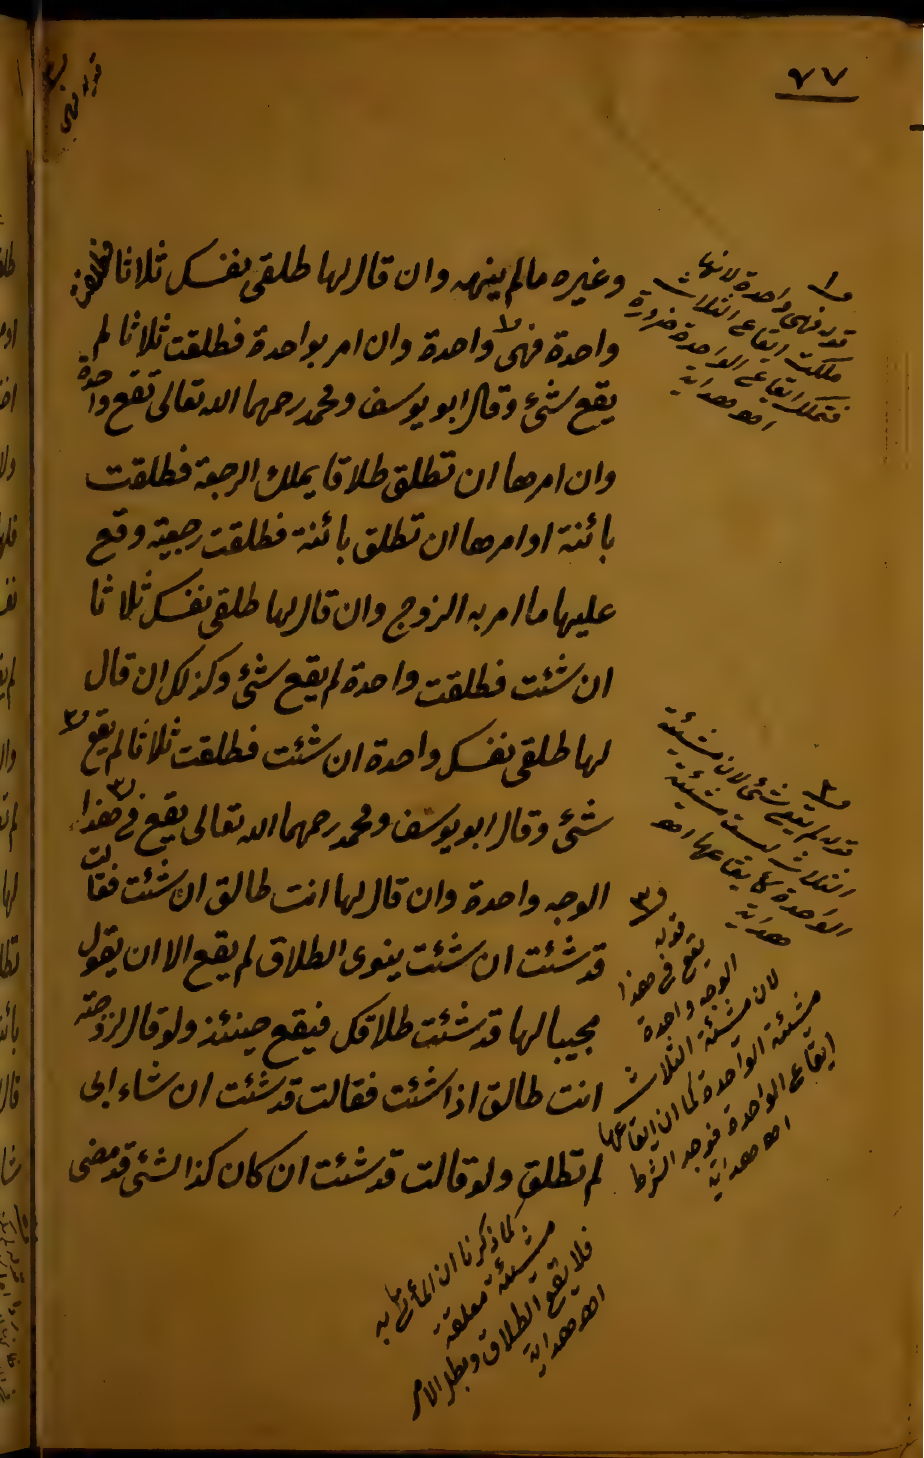 ٧٧
وغيره مالم ينهه وان قال لها طلقي نفسك ثلاثا فطلقت
واحدة فهي واحدة وان امر بواحدة فطلقت ثلاثا لم
يقع شئ وقال ابو يوسف ومحمد رحمهما الله تعالى تقع واحدة
وان امرها ان تطلق طلاقا يملك الرجعة فطلقت
بائنة او امرها ان تطلق بائنة فطلقت رجعية وقع
عليها ما امر به الزوج وان قال لها طلقي نفسك ثلاثا
ان شئت فطلقت واحدة لم يقع شئ وكذلك ان قال
لها طلقي نفسك واحدة ان شئت فطلقت ثلاثا لم يقع
شئ وقال ابو يوسف ومحمد رحمهما الله تعالى يقع في هذا
الوجه واحدة وان قال لها انت طالق ان شئت فقالت
قد شئت ان شئت ينوى الطلاق لم يقع الا ان يقول
مجيبا لها قد شئت طلاقك فيقع حينئذ ولو قال لزوجته
انت طالق اذا شئت فقالت قد شئت ان شاء ابى
لم تطلق ولو قالت قد شئت ان كان كذا لشئ قد مضى
١
قوله فهي واحدة لانها
ملكت ايقاع الثلاث
فتملك ايقاع الواحدة ضرورة
اه هداية
٢
قوله لم يقع شئ لان مشيئة
الثلاث ليست مشيئة
الواحدة كايقاعها اه
هداية
٣
قوله
يقع في هذا
الوجه واحدة
لان مشئة الثلاث
مشيئة الواحدة كما ان ايقاعها
ايقاع الواحدة فوجد الشرط
اه هداية
لما ذكرنا ان المأتى به
مشيئة معلقة
فلا يقع الطلاق وبطل الامر
اه هداية